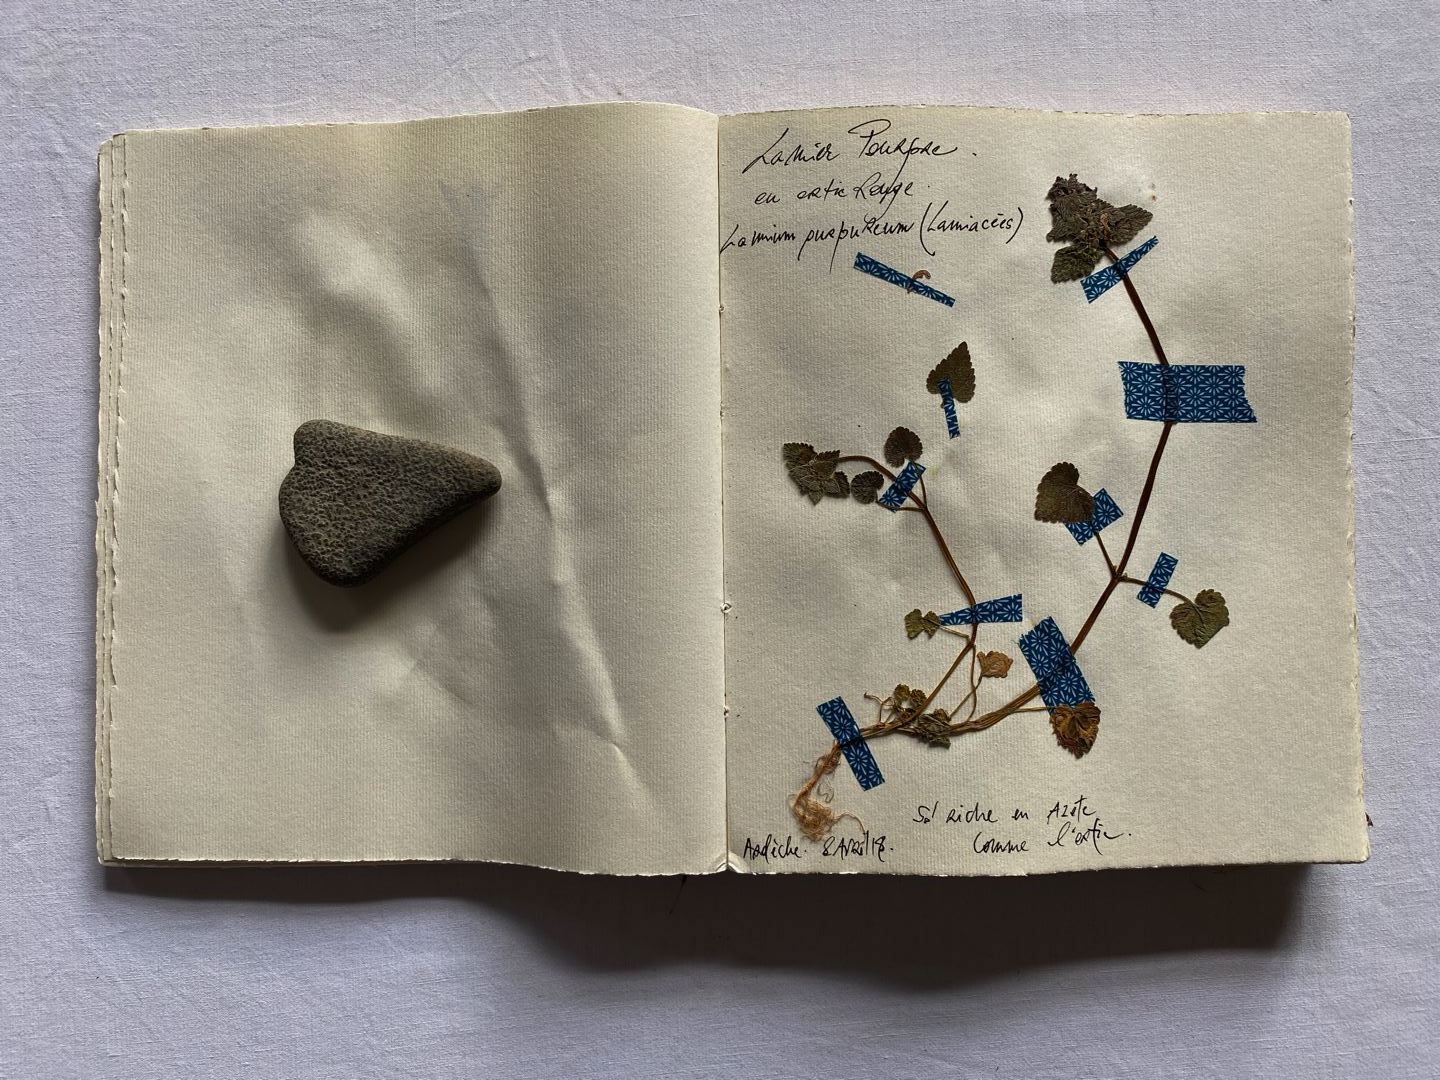 Lamier Pourpre.
ou ortie Rouge.
Lamium purpureum (Lamiacées)
Sol riche en Azote
comme l'ortie.
Ardèche. 8 Avril 18.